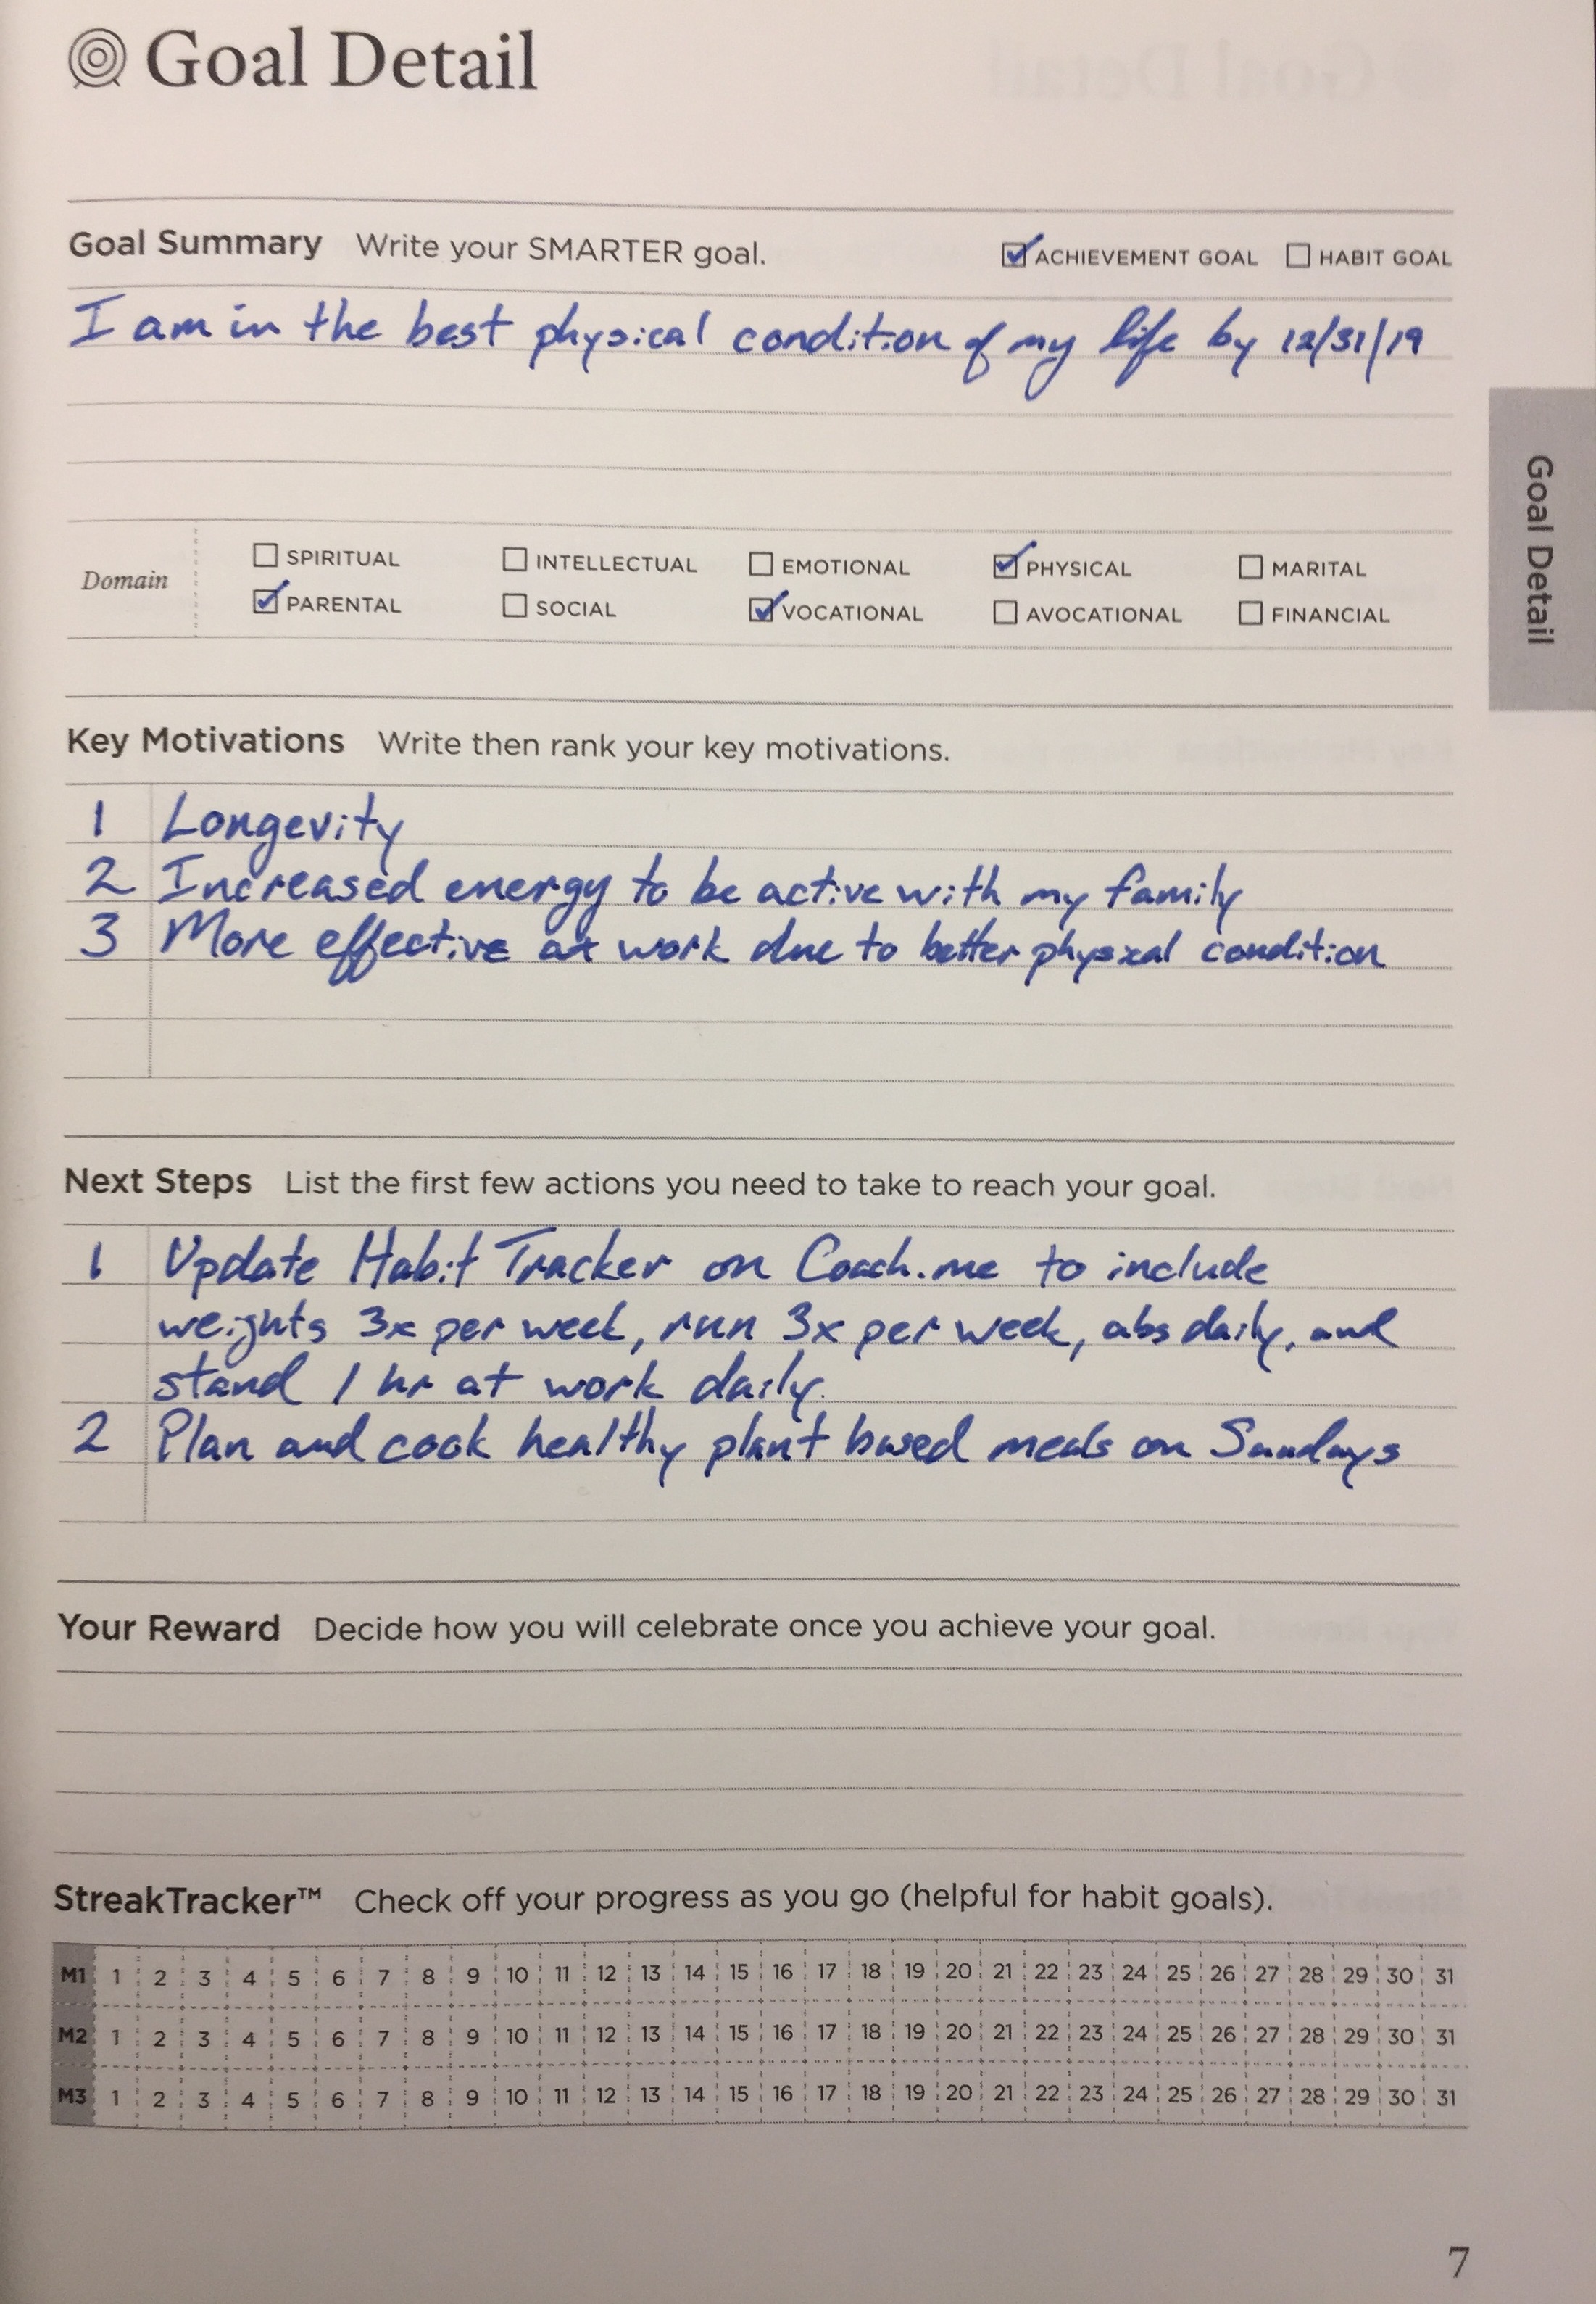 Goal Detail
Goal Summary Write your SMARTER goal. ACHIEVEMENT GOAL HABIT GOAL
I am in the best physical condition of my life by 12/31/19
Goal Detail
SPIRITUAL INTELLECTUAL EMOTIONAL PHYSICAL MARITAL
Domain
PARENTAL SOCIAL VOCATIONAL AVOCATIONAL FINANCIAL
Key Motivations Write then rank your key motivations.
1 Longevity
2 Increased energy to be active with my family
3 More effective at work due to better physical condition
Next Steps List the first few actions you need to take to reach your goal.
1 Update Habit Tracker on Coach.me to include
weights 3x per week, run 3x per week, abs daily, and
stand 1 hr at work daily.
2 Plan and cook healthy plant based meals on Sundays
Your Reward Decide how you will celebrate once you achieve your goal.
StreakTracker™ Check off your progress as you go (helpful for habit goals).
M1 1 2 3 4 5 6 7 8 9 10 11 12 13 14 15 16 17 18 19 20 21 22 23 24 25 26 27 28 29 30 31
M2 1 2 3 4 5 6 7 8 9 10 11 12 13 14 15 16 17 18 19 20 21 22 23 24 25 26 27 28 29 30 31
M3 1 2 3 4 5 6 7 8 9 10 11 12 13 14 15 16 17 18 19 20 21 22 23 24 25 26 27 28 29 30 31
7